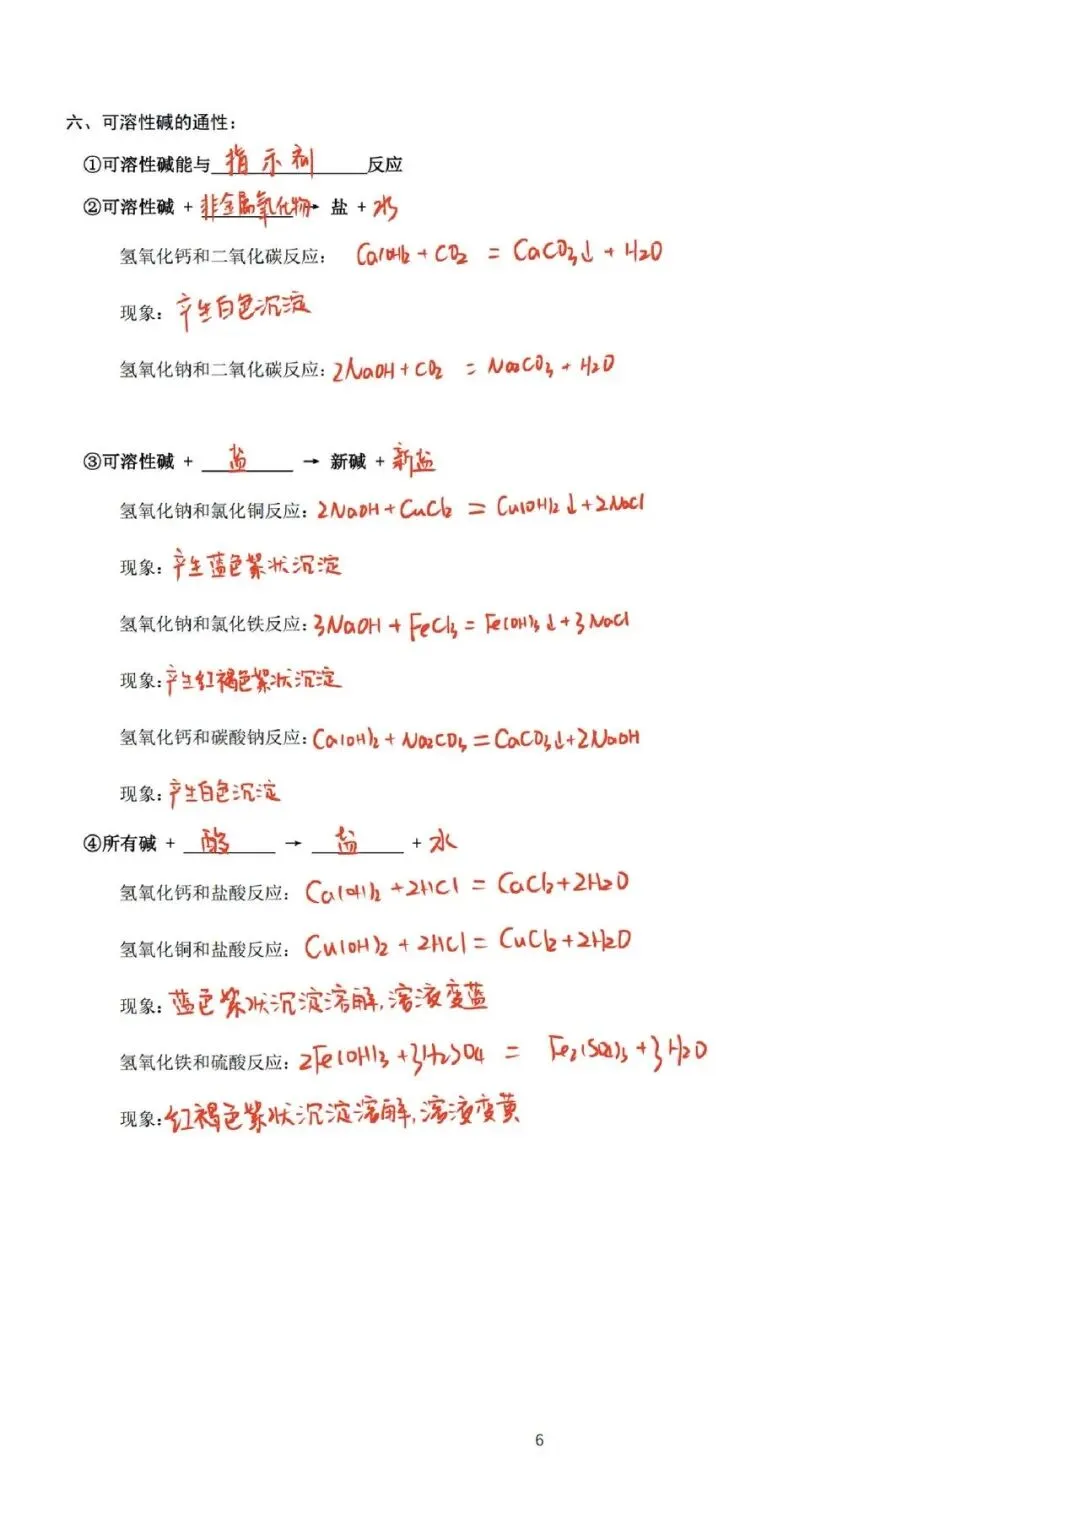 六、可溶性碱的通性：
①可溶性碱能与指示剂反应
②可溶性碱 + 非金属氧化物→ 盐 + 水
氢氧化钙和二氧化碳反应： Ca(OH)2 + CO2 = CaCO3↓ + H2O
现象：产生白色沉淀
氢氧化钠和二氧化碳反应：2NaOH + CO2 = Na2CO3 + H2O
③可溶性碱 + 盐 → 新碱 + 新盐
氢氧化钠和氯化铜反应：2NaOH + CuCl2 = Cu(OH)2↓+2NaCl
现象：产生蓝色絮状沉淀
氢氧化钠和氯化铁反应：3NaOH + FeCl3 = Fe(OH)3↓+3NaCl
现象：产生红褐色絮状沉淀
氢氧化钙和碳酸钠反应：Ca(OH)2 + Na2CO3 = CaCO3↓+2NaOH
现象：产生白色沉淀
④所有碱 + 酸 → 盐 + 水
氢氧化钙和盐酸反应： Ca(OH)2 +2HCl = CaCl2+2H2O
氢氧化铜和盐酸反应： Cu(OH)2 + 2HCl = CuCl2+2H2O
现象：蓝色絮状沉淀溶解,溶液变蓝
氢氧化铁和硫酸反应：2Fe(OH)3 +3H2SO4 = Fe2(SO4)3+3H2O
现象：红褐色絮状沉淀溶解,溶液变黄
6